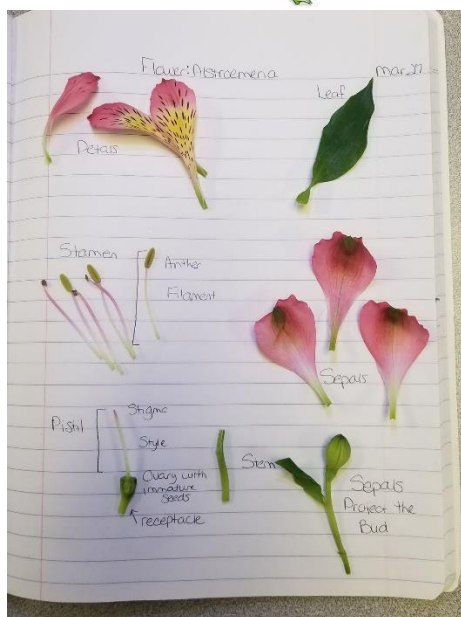 Flower: Alstroemeria
Mar 27
Leaf
Petals
Stamen
Anther
Filament
Sepals
Pistil
Stigma
Style
Ovary with
immature
Seeds
receptacle
Stem
Sepals
Protect the
Bud